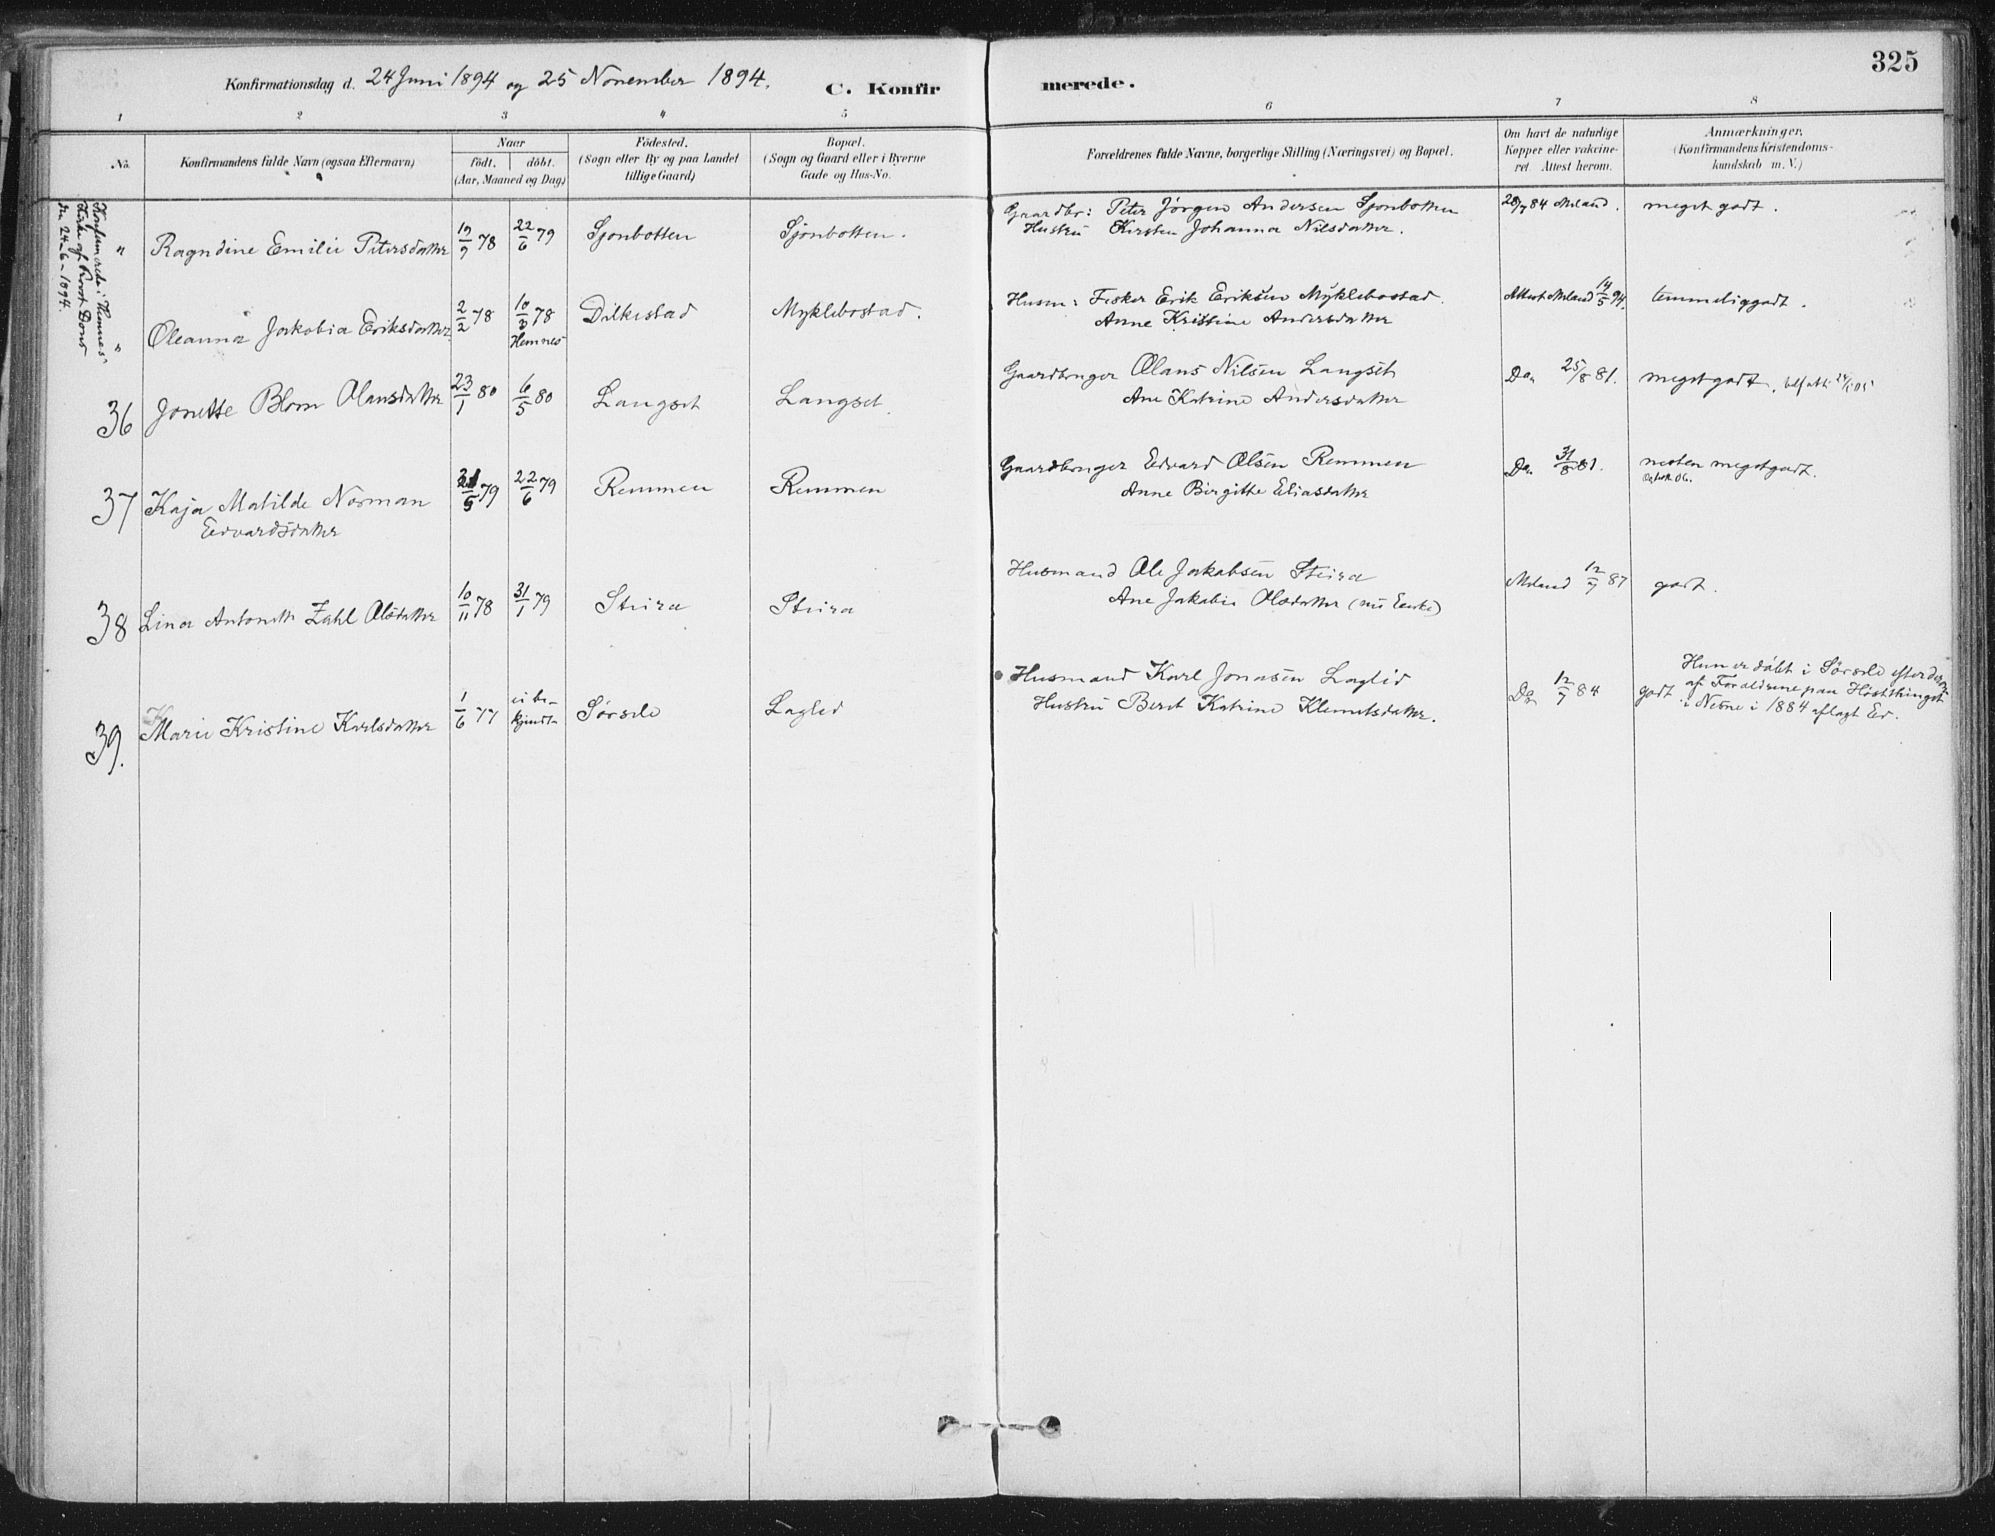 325
Konfirmationsdag d. 24 Juni 1894 og 25 November 1894. C. Konfirmerede.
1 2 3 4 5 6 7 8
No. Konfirmandens fulde Navn (ogsaa Efternavn)
Naar födt. döbt. (Aar, Maaned og Dag)
Födested. (Sogn eller By og paa Landet tillige Gaard)
Bopæl. (Sogn og Gaard eller i Byerne Gade og Hus-No.
Forældrenes fulde Navne, borgerlige Stilling (Næringsvei) og Bopæl.
Om havt de naturlige Kopper eller vakcineret. Attest herom.
Anmærkninger. (Konfirmandens Kristendomskundskab m. V.)
Konfirmerede i Hemnes
Kirke af Provst Dons
den 24-6-1894.
" Ragndine Emilie Petersdatter 19/9 78 22/6 79 Sjonbotten Sjönbotten.
Gaardbr: Peter Jørgen Andersen Sjonbotten 28/7 84 Meland. meget godt.
Hustru Kirsten Johanna Nilsdatter.
" Oleanna Jakobia Eriksdatter 2/2 78 78 Hemnes Dilkestad Myklebostad.
Husm: Fisker Erik Eriksen Myklebostad. Attest Meland 14/5 94. temmelig godt.
Anne Kristine Andersdatter
36 Jonette Blom Olausdatter 23/1 80 6/5 80 Langset Langset
Gaardbruger Olaus Nilsen Langset Do. 25/8 81. meget godt.
Ane Katrine Andersdatter
37 Kaja Matilde Norman 5 79 22/6 79 Remmen Remmen
Edvardsdatter
Gaardbruger Edvard Olsen Remmen Do. 31/8 81. nesten meget godt.
Anne Birgitte Eliasdatter
38 Lina Antonette Zahl Olsdatter 10/11 78 31/1 79 Stuira Stuira
Husmand Ole Jakobsen Stuira Meland 12/7 87 godt.
Ane Jakobie Olsdatter (nu Enke)
39. Marie Kristine Karlsdatter 1/6 77 ei bekjendt Sørsele Laglid
Husmand Karl Jonasen Laglid Do. 12/7 84 godt
Hustru Beret Katrine Klemetsdatter.
Hun er døbt i Sørsele efter den
af Forældrene paa Høstthinget
i Nesne i 1884 aflagt Ed.